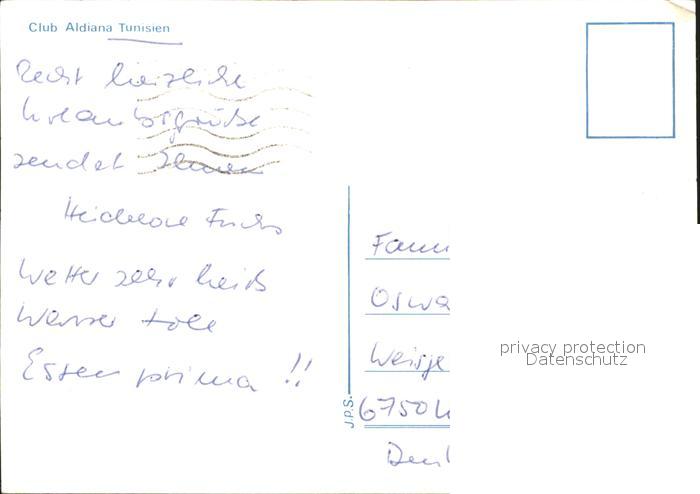 Club Aldiana Tunisien
Recht herzliche
Urlaubsgrüße
sendet Ihnen
Heidelore Fuchs
Wetter sehr heiß
Wasser toll
Essen prima !!
J.P.S.
Fam
Oswa
Weisge
6750 K
Deu
privacy protection
Datenschutz